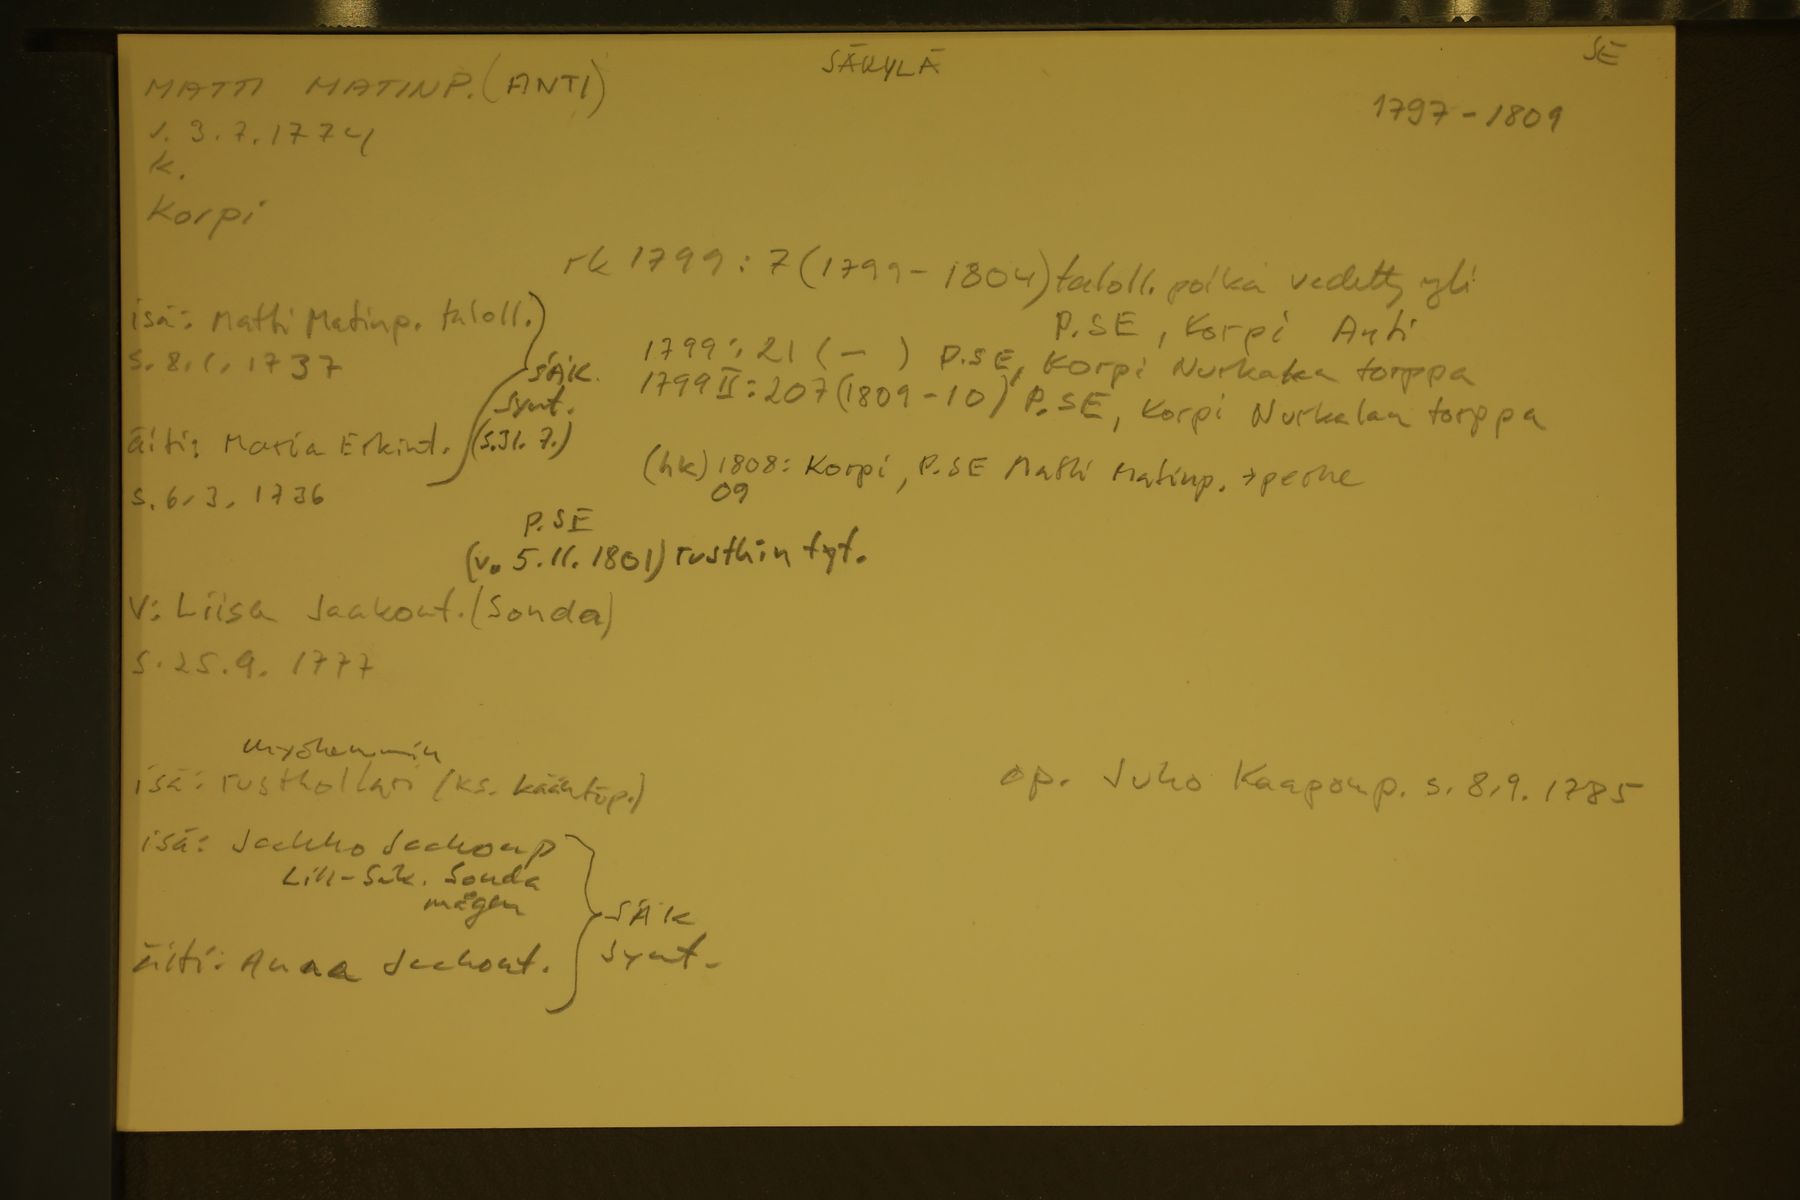 SÄKYLÄ
SE
MATTI MATINP. (ANTI)
1797-1809
s. 3.7.1774
k.
Korpi
rk 1799: 7 (1799-1804) taloll. poika vedetty yli
P.SE, Korpi Anti
isä: Matti Matinp. taloll.)
s. 8.1.1737
SÄK.
synt.
(s.31.7.)
1799: 21 ( - ) P.SE, Korpi Nurkalan torppa
1799 II: 207 (1809-10) P.SE, Korpi Nurkalan torppa
äiti: Maria Erkint.
s. 6.3.1736
(hk) 1808: Korpi, P.SE Matti Matinp. + perhe
09
P.SE
(v. 5.11.1801) rusthin tyt.
V: Liisa Jaakont. (Sonda)
s. 25.9.1777
myöhemmin
isä: rusthollari (ks. kääntöp.)
op. Juho Kaaponp. s. 8.9.1785
isä: Jaakko Jaakonp
Lill-Säk. Sonda
mågen
SÄK
synt.
äiti: Anna Jaakont.